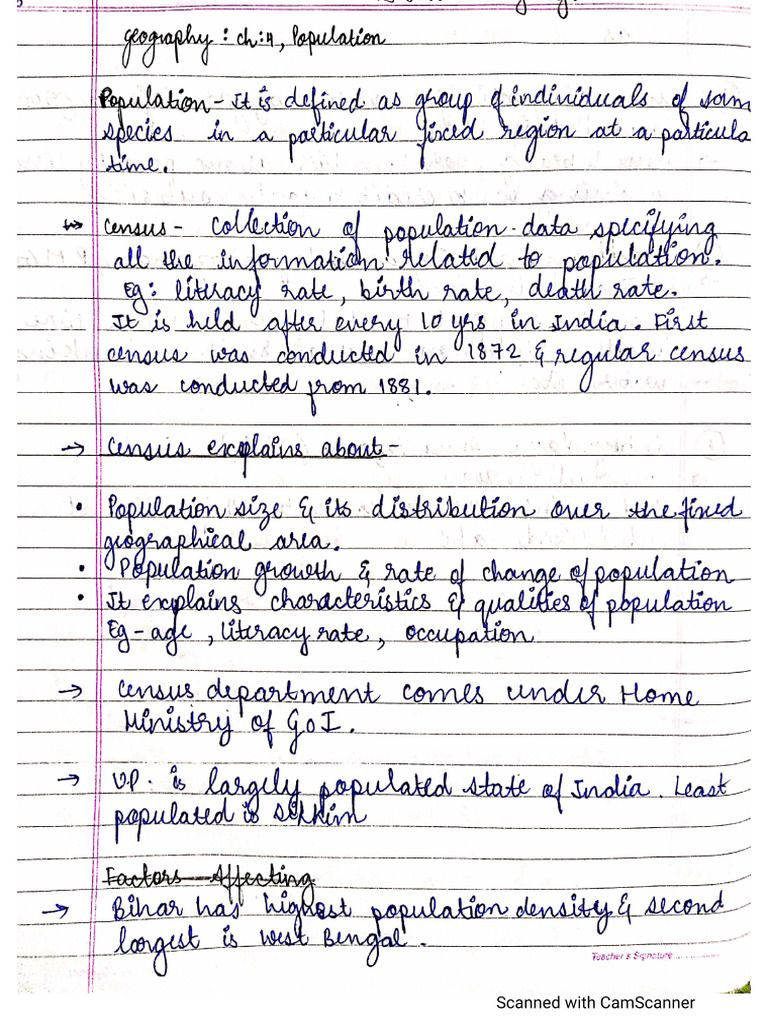 geography : ch:4, Population
Population - It is defined as group of individuals of sam
species in a particular fixed region at a particula
time.
Census - collection of population data specifying
all the information related to population.
Eg: literacy rate, birth rate, death rate.
It is held after every 10 yrs in India. First
census was conducted in 1872 & regular census
was conducted from 1881.
→ Census explains about -
• Population size & its distribution over the fixed
geographical area.
• Population growth & rate of change of population
• It explains characteristics & qualities of population
Eg - age, literacy rate, occupation
→ Census department comes under Home
Ministry of GoI.
→ U.P. is largely populated state of India. Least
populated is Sikkim
Factors Affecting
→ Bihar has highest population density & second
largest is West Bengal.
Teacher's Signature ..............
Scanned with CamScanner